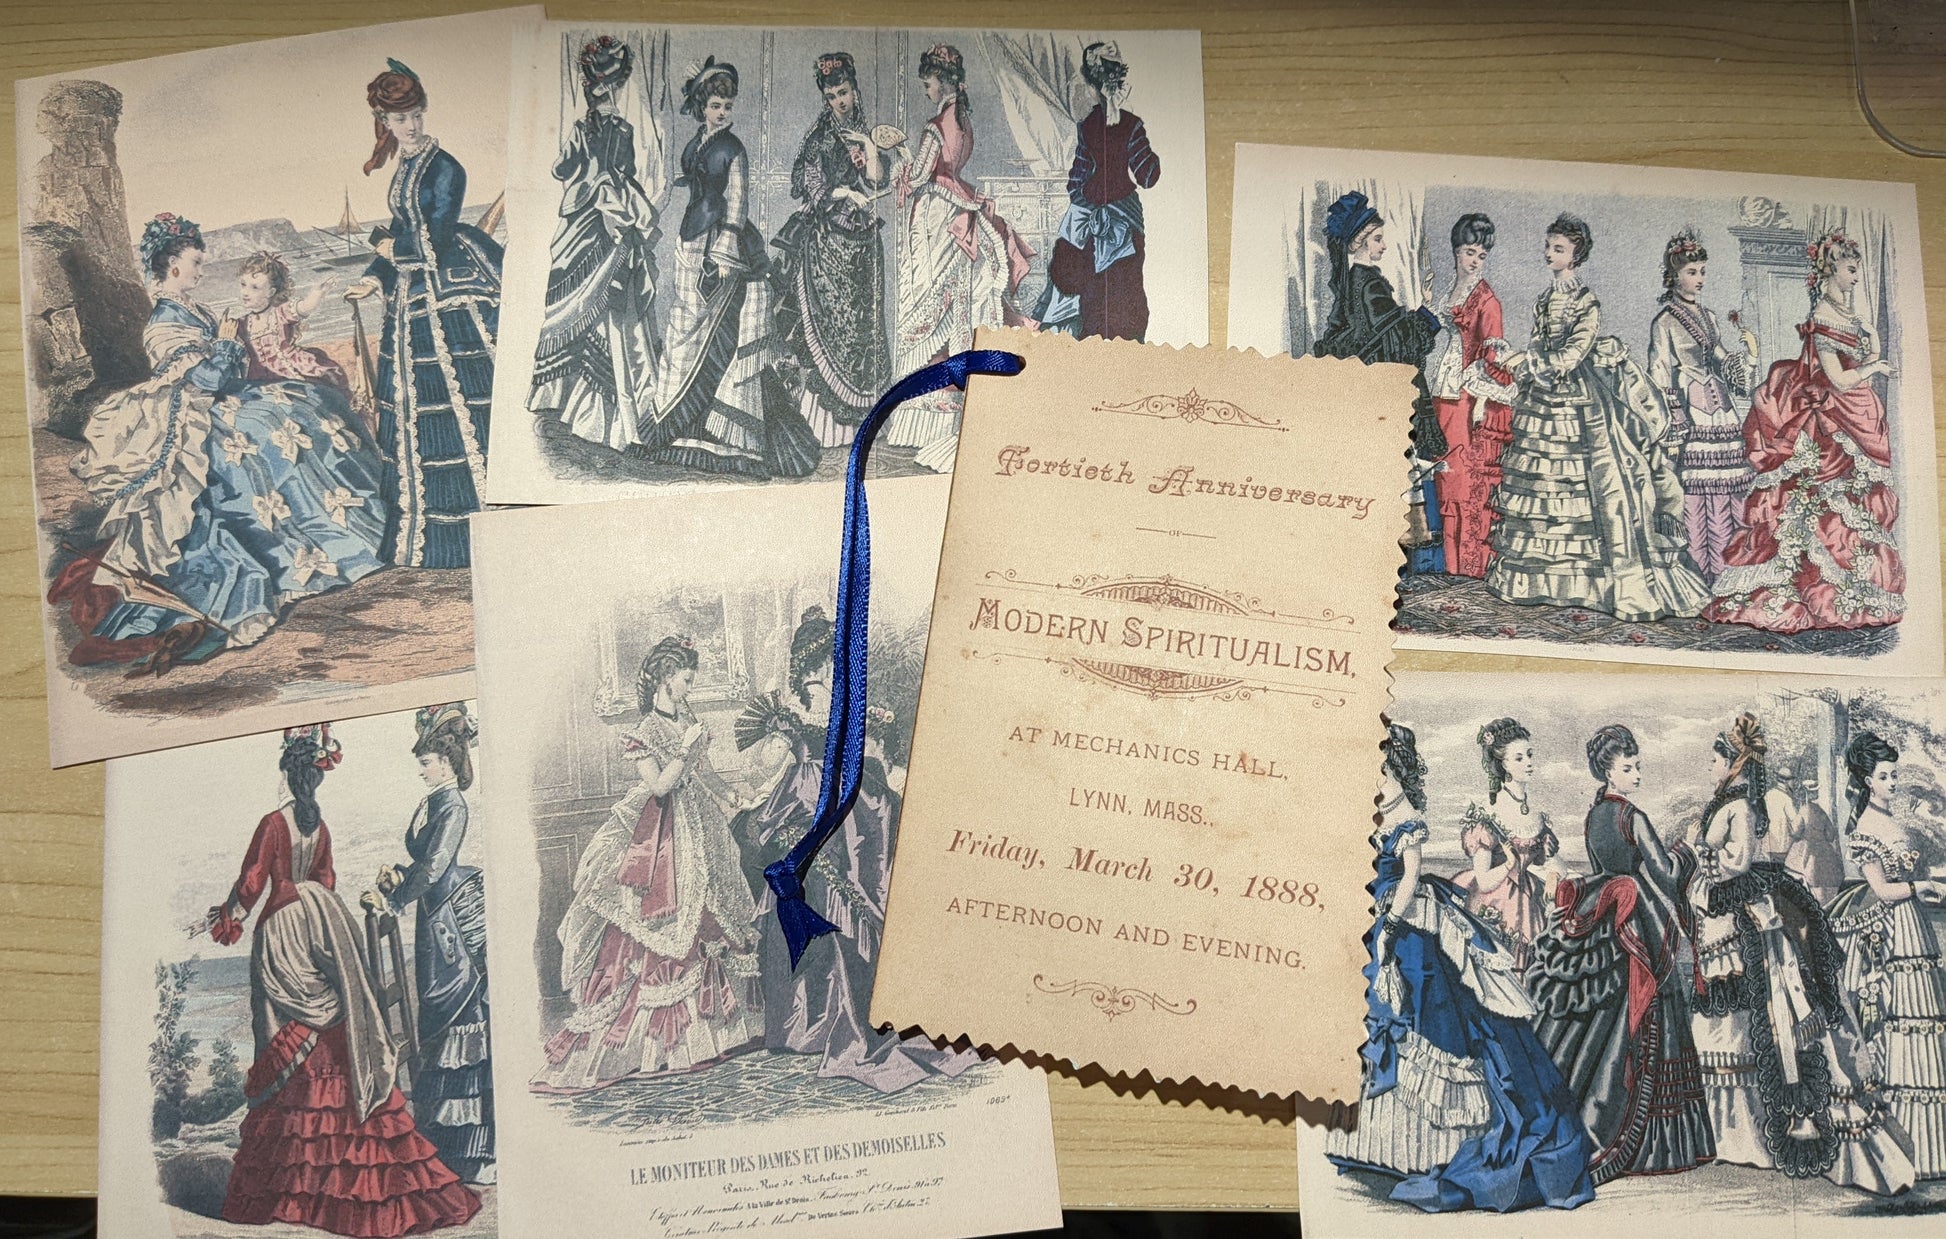 Fortieth Anniversary
OF
MODERN SPIRITUALISM,
AT MECHANICS HALL,
LYNN, MASS.,
Friday, March 30, 1888,
AFTERNOON AND EVENING.
Jules David
LE MONITEUR DES DAMES ET DES DEMOISELLES
Paris, Rue de Richelieu, 92